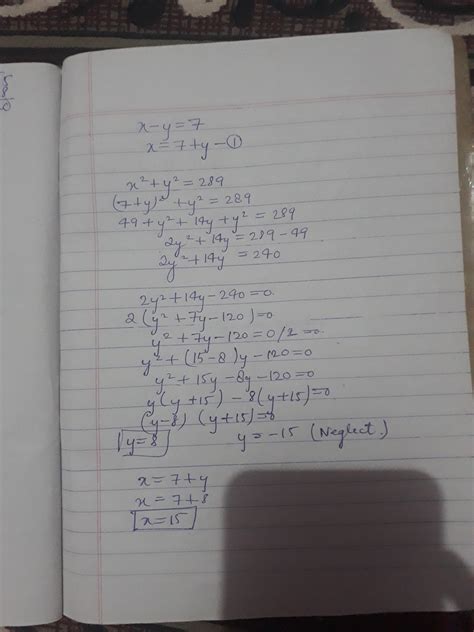 x-y=7
x=7+y-①
x²+y²=289
(7+y)²+y²=289
49+y²+14y+y²=289
2y²+14y=289-49
2y²+14y=240
2y²+14y-240=0
2(y²+7y-120)=0
y²+7y-120=0/2=0
y²+(15-8)y-120=0
y²+15y-8y-120=0
y(y+15)-8(y+15)=0
(y-8)(y+15)=0
y=8 y=-15 (Neglect)
x=7+y
x=7+8
x=15